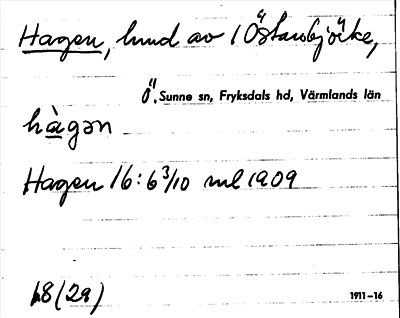 Hagen, hmd av 1 Östanbjörke,
Ö. Sunne sn, Fryksdals hd, Värmlands län
hàgən
Hagen 16: 6 3/10 mtl 1909
1911–16